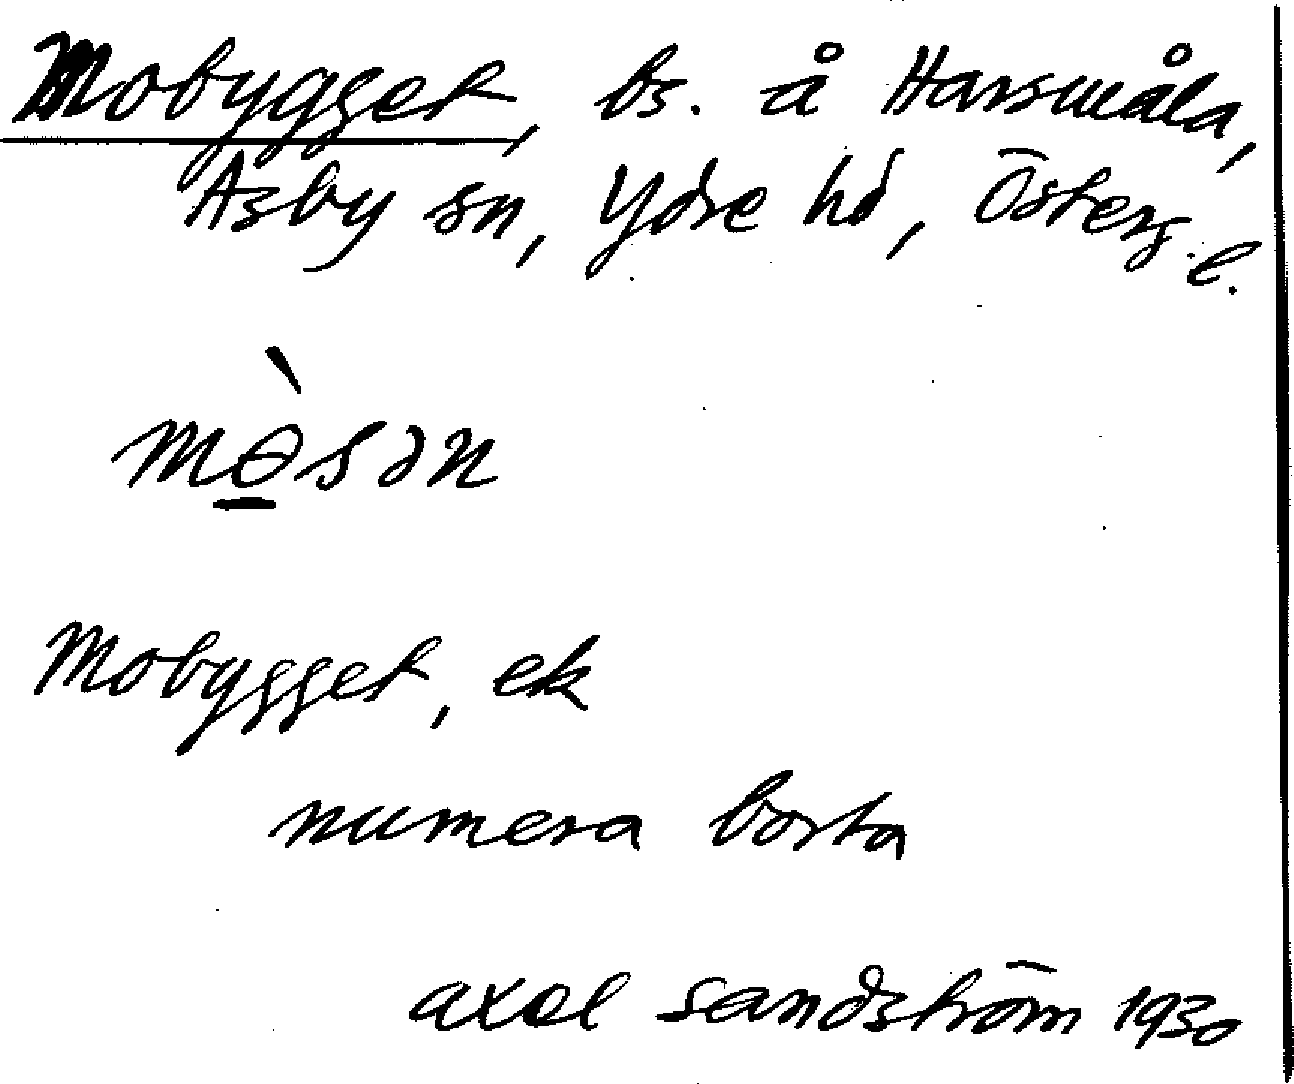 Mobygget, bs. å Harsmåla,
Asby sn, Ydre hd, Österg.l.
mòsən
Mobygget, ek
numera borta
axel sandström 1930